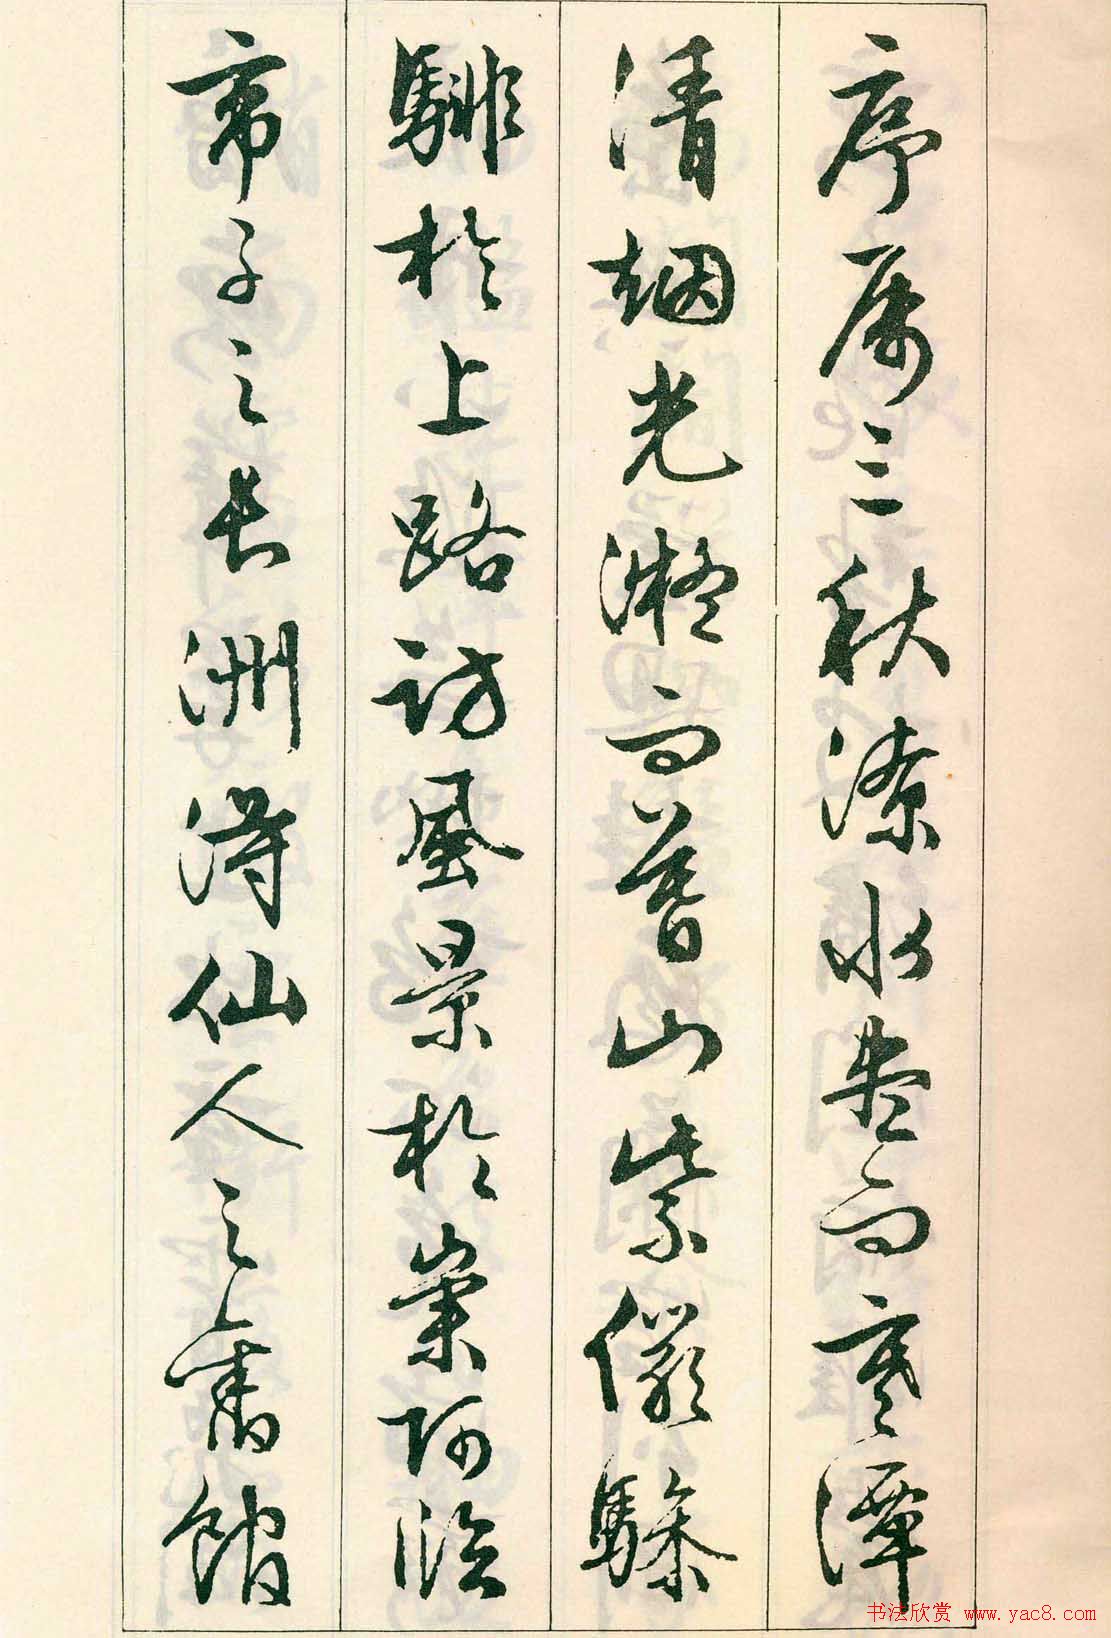 序属三秋潦水尽而寒潭
清烟光凝而暮山紫俨骖
騑於上路访風景於崇阿临
帝子之長洲得仙人之舊館
书法欣赏 www.yac8.com